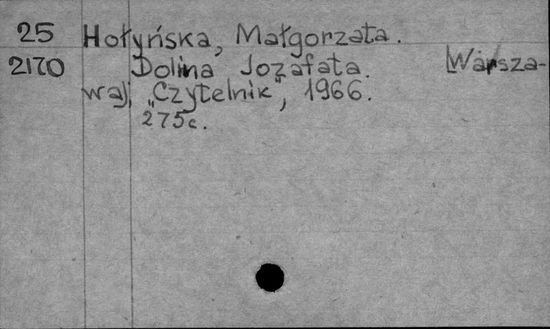 25 Hołyńska, Małgorzata.
2170 Dolina Jozafata. [Warsza-
wa], „Czytelnik", 1966.
275c.